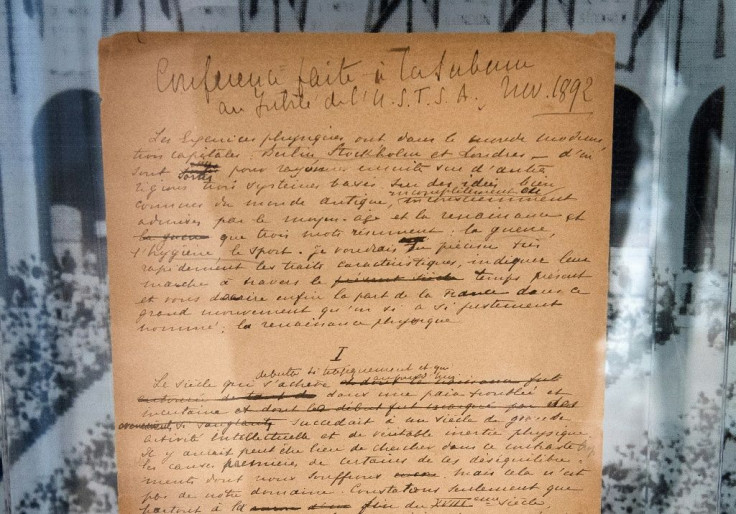 Conférence faite à la Sorbonne
au Jubilé de l'U.S.F.S.A. Nov. 1892
Les Exercices physiques ont dans le monde moderne,
trois capitales : Berlin, Stockholm et Londres — d'où
sont sortis pour rayonner ensuite sur d'autres
régions trois systèmes basés sur des idées bien
connues du monde antique, incomplètement
admises par le moyen-age et la renaissance et
la guerre que trois mots résument : la guerre,
l'hygiène, le sport. Je voudrais en préciser très
rapidement les traits caractéristiques, indiquer leur
marche à travers le présent siècle temps présent
et vous dire enfin la part de la France dans ce
grand mouvement qu'on a si justement
nommé : la renaissance physique
I
débuter si
Le siècle qui s'achève
dans une paix troublée et
incertaine et dont le début fut marqué par des
si sanglants succédait à un siècle de grande
activité intellectuelle et de véritable inertie physique.
Il y aurait peut être lieu de chercher dans ce contraste
les causes premières de certains de ces déséquilibre-
ments dont nous souffrons mais cela n'est
pas de notre domaine. Constatons seulement que
partout à la fin du XVIIIme siècle,